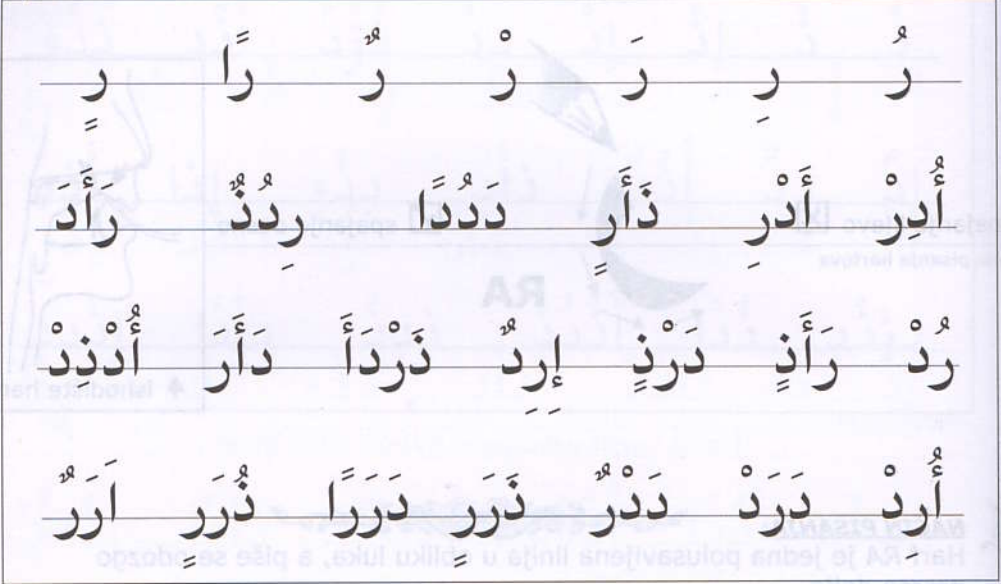 رُ رِ رَ رْ رٌ رًا رٍ
أُدِرْ أَدْرِ ذَأَرٍ دَدُدًا رِدُذٌ رَأَدَ
رُدْ رَأَذٍ دَرْذٍ إِرِدٌ ذَرْدَأَ دَأَرَ أُدْذِدْ
أُرِدْ دَرَدْ دَدْرٌ ذَرَرٍ دَرَرًا ذُرَرٍ اَرَرٌ